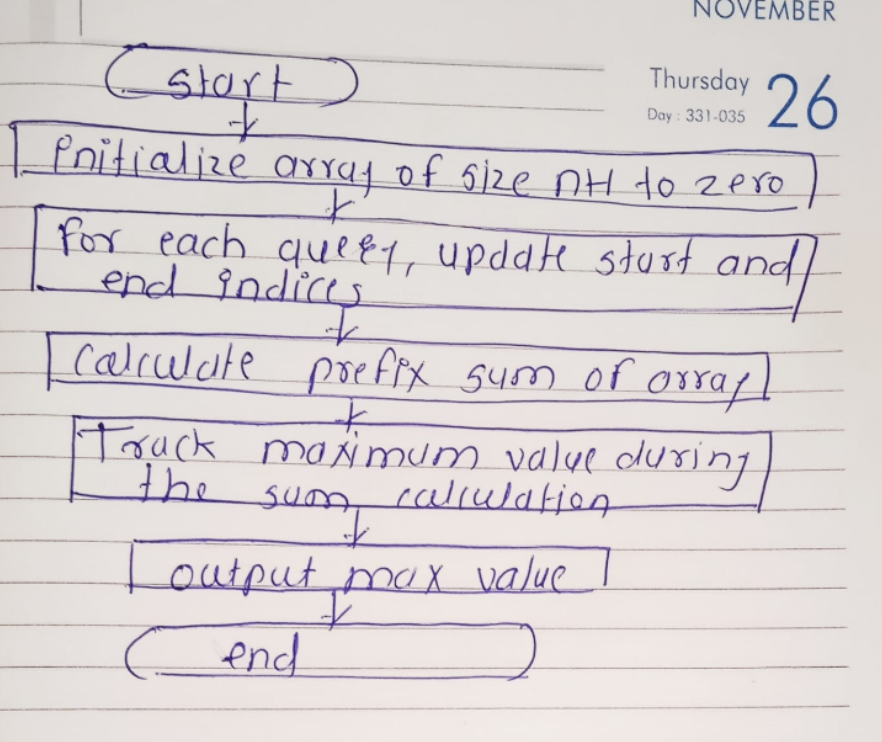 NOVEMBER
Thursday 26
Day : 331-035
start
Initialize array of size n+1 to zero
for each query, update start and
end indices
Calculate prefix sum of array
Track maximum value during
the sum calculation
output max value
end